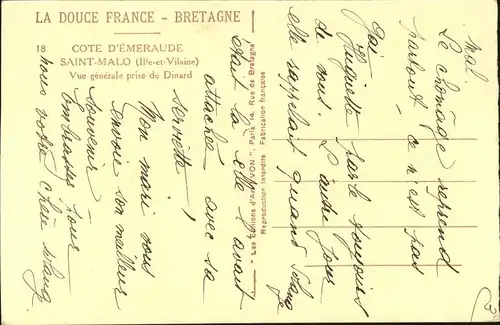 LA DOUCE FRANCE - BRETAGNE
18 COTE D'ÉMERAUDE
SAINT-MALO (Ille-et-Vilaine)
Vue générale prise de Dinard
"Les Editions d'Art YVON", Paris, Rue de Bretagne
Reproduction interdite Fabrication française
mal.
Le chômage reprend
partout, ce n'est pas
gai. Huguette parle toujours
de vous. L'autre jour
elle rappelait quand Solange
était là elle l'avait
attachée avec sa
serviette!
Mon mari vous
envoie son meilleur
souvenir.
Embrassez pour
nous votre chère Solange